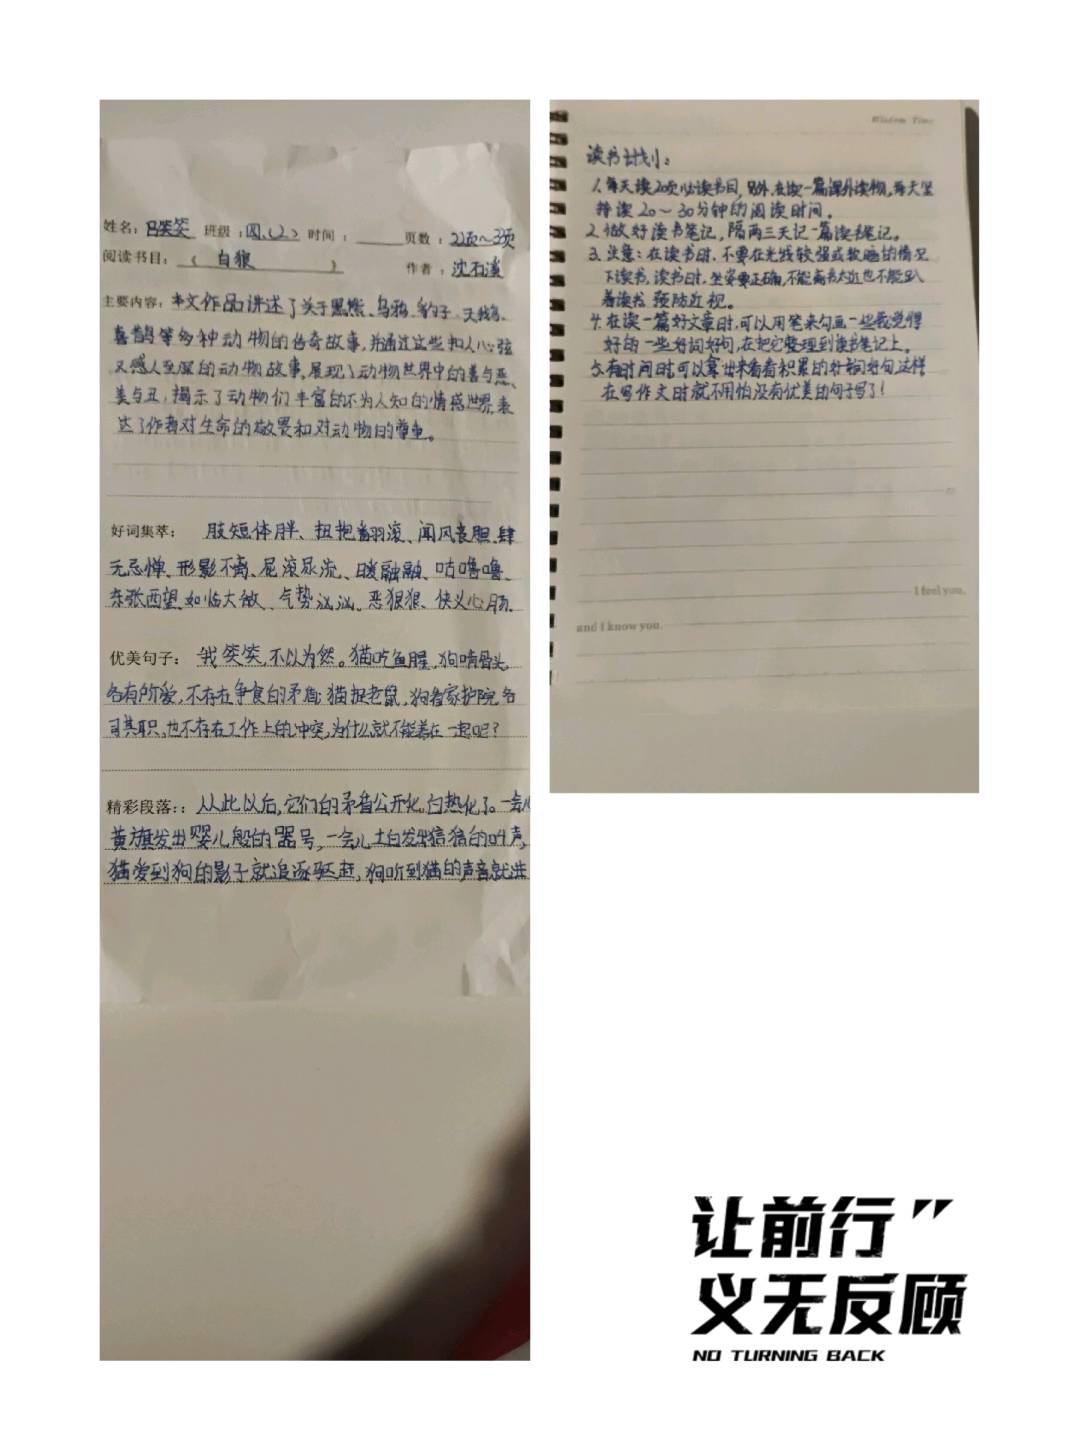 姓名：马笑笑 班级：四.(2.) 时间：____ 页数：22页～3页
阅读书目：（ 白狼 ） 作者：沈石溪
主要内容：本文作品讲述了关于黑熊、乌鸦、豹子、天鹅、
喜鹊等多种动物的传奇故事,并通过这些扣人心弦
又感人至深的动物故事,展现了动物世界中的善与恶、
美与丑,揭示了动物们丰富的不为人知的情感世界,表
达了作者对生命的敬畏和对动物的尊重。
好词集萃： 肢短体胖、扭抱翻滚、闻风丧胆、肆
无忌惮、形影不离、屁滚尿流、暖融融、咕噜噜、
东张西望、如临大敌、气势汹汹、恶狠狠、侠义心肠.
优美句子： 我笑笑,不以为然。猫吃鱼腥,狗啃骨头,
各有所爱,不存在争食的矛盾;猫捉老鼠,狗看家护院,各
司其职,也不存在工作上的冲突,为什么就不能养在一起呢?
精彩段落：: 从此以后,它们的矛盾公开化,白热化了。一会儿
黄旗发出婴儿般的嚣号,一会儿土白发出狺狺的叫声,
猫爱到狗的影子就追逐驱赶,狗听到猫的声音就进
Wisdom Time
读书计划：
1.每天读20页必读书目,另外,在读一篇课外读物,每天坚
持读20～30分钟的阅读时间。
2.做好读书笔记,隔两三天记一篇读书笔记。
3.注意：在读书时,不要在光线较强或较暗的情况
下读书,读书时,坐姿要正确,不能离书太近也不能趴
着读书,预防近视。
4.在读一篇好文章时,可以用笔来勾画一些我觉得
好的一些好词好句,在把它整理到读书笔记上。
5.有时间时可以拿出来看看积累的好词好句这样
在写作文时就不用怕没有优美的句子写了!
I feel you,
and I know you.
让前行"
义无反顾
NO TURNING BACK